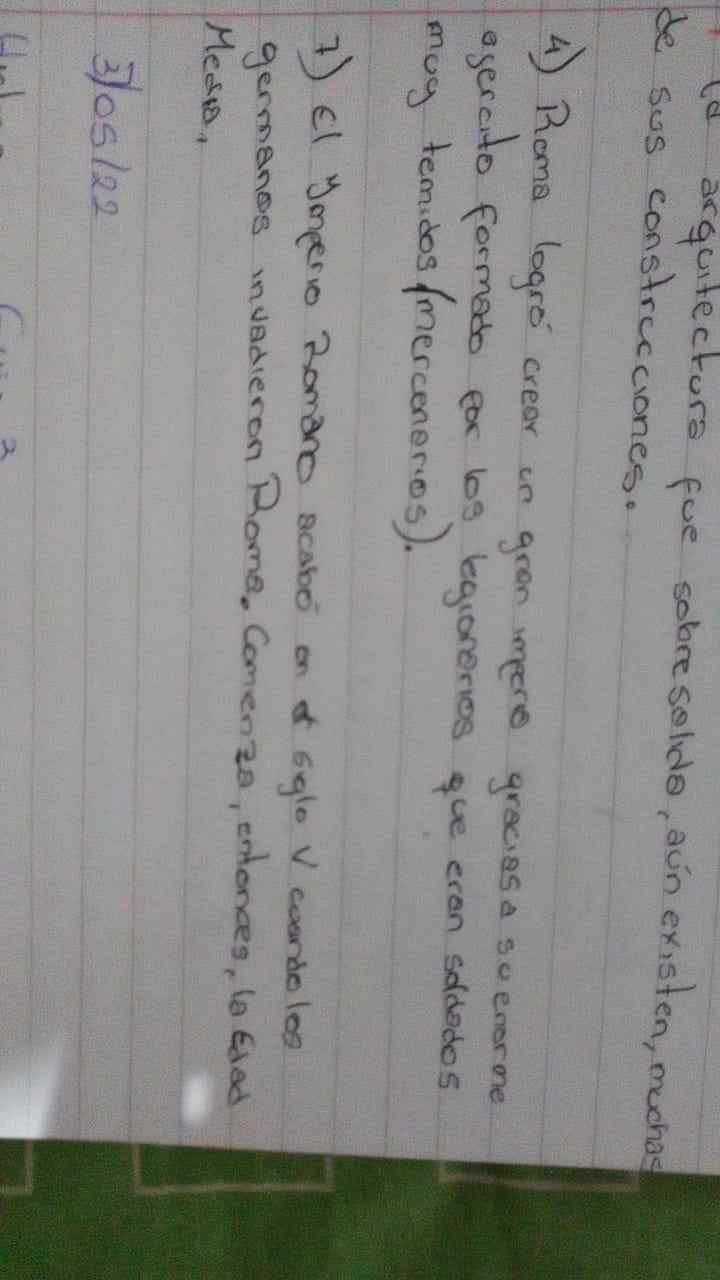 la arquitectura fue sobresalida, aún existen, muchas
de sus construcciones.
4) Roma logró crear un gran imperio gracias a su enorme
egercito formado por los legionarios que eran soldados
muy temidos (mercenarios).
7) El Ymperio Romano acabó en el siglo V cuando los
germanos invadieron Roma. Comienza, entonces, la Edad
Media,
31/05/22